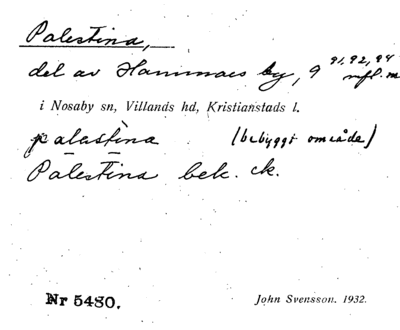 Palestina,
91,92,94
del av Hammars by, 9 mfl. m
i Nosaby sn, Villands hd, Kristianstads l.
palastìna (bebyggt område)
Pālestīna bek. ck.
Nr 5480. John Svensson. 1932.